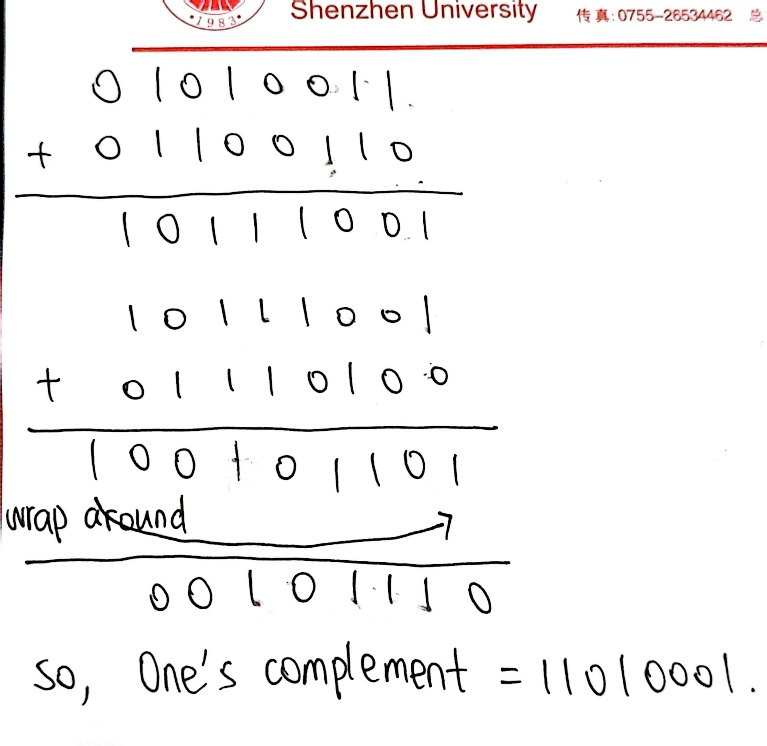 ·1983·
Shenzhen University 传真:0755-26534462 总
0 1 0 1 0 0 1 1
+ 0 1 1 0 0 1 1 0
1 0 1 1 1 0 0 1
1 0 1 1 1 0 0 1
+ 0 1 1 1 0 1 0 0
1 0 0 1 0 1 1 0 1
wrap around
0 0 1 0 1 1 1 0
so, One's complement = 11010001.